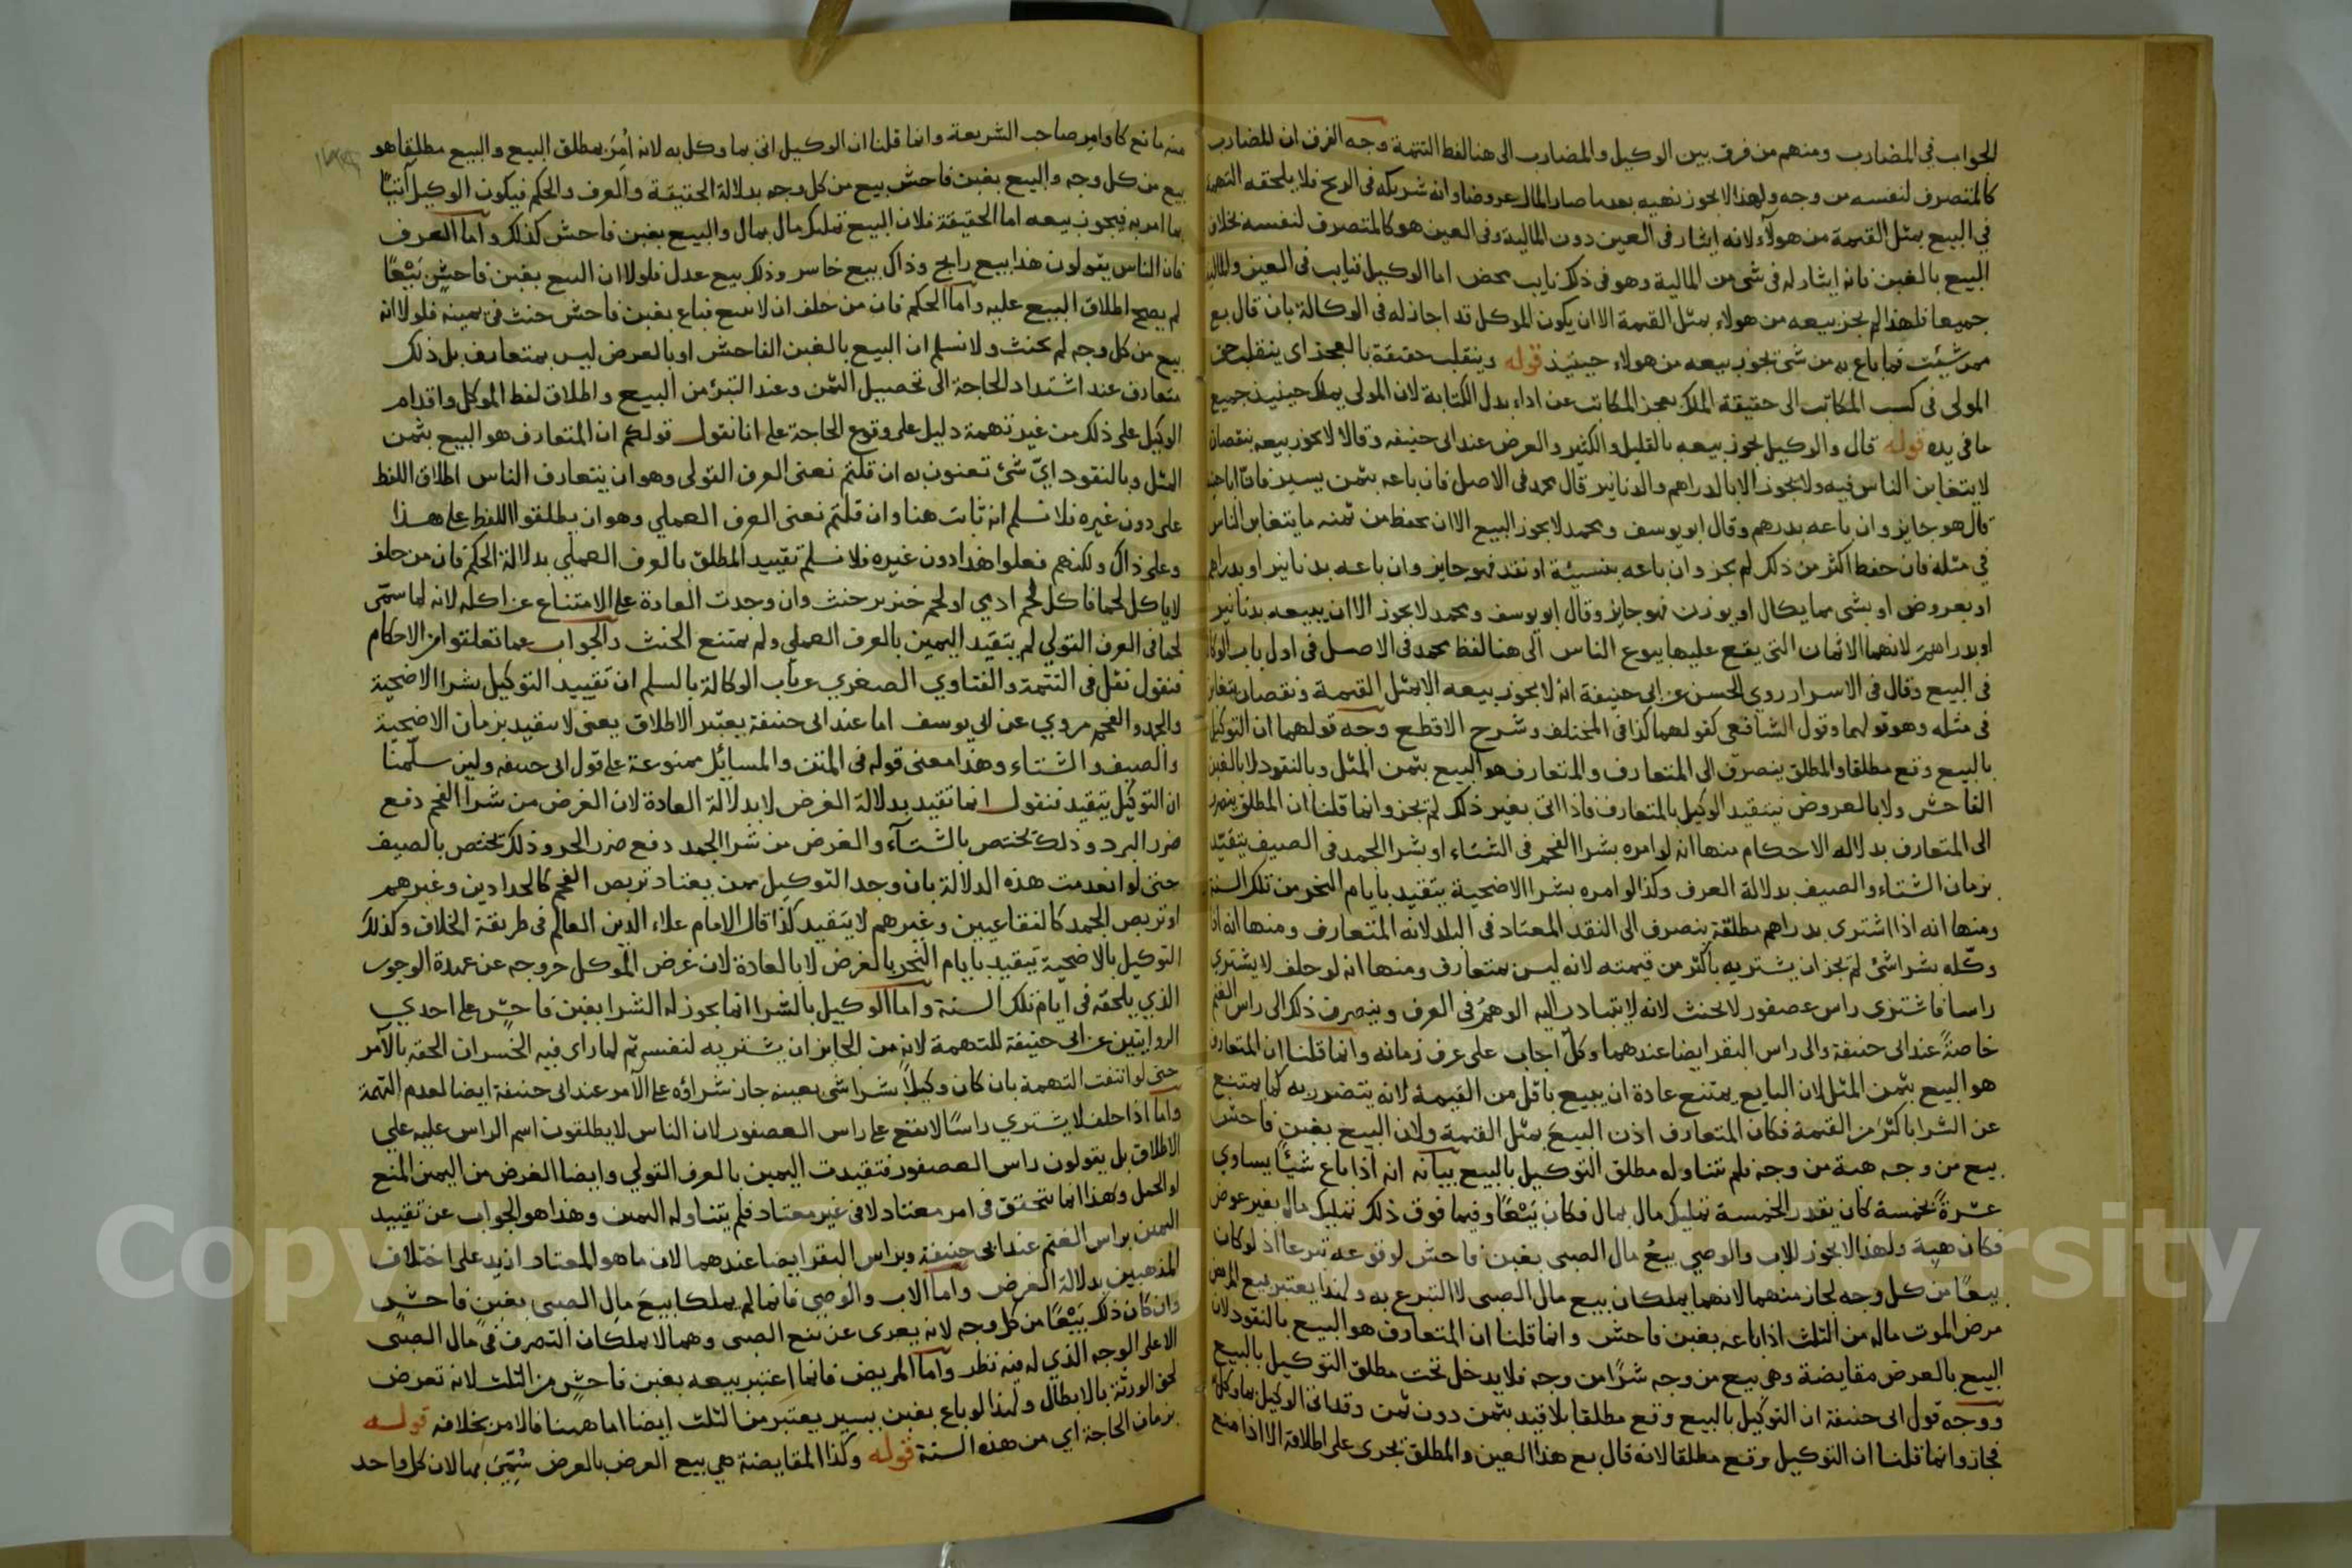 الجواب في المضارب ومنهم من فرق بين الوكيل والمضارب الى هنا لفظ التتمة وجه الفرق ان المضارب
كالمتصرف لنفسه من وجه ولهذا لا يجوز نهيه بعد ما صار المال عروضا وانه شريكه في الربح فلا يلحقه التهمة
في البيع بمثل القيمة من هولآء لانه ايثار في العين دون المالية وفي العين هو كالمتصرف لنفسه بخلاف
البيع بالغبن فانه ايثار له في شي من المالية وهو في ذلك نايب محض اما الوكيل فنايب في العين والمالية
جميعا فلهذا لم يجز بيعه من هولاء بمثل القيمة الا ان يكون الموكل قد اجاز له في الوكالة بان قال بع
ممن شيئت فما باع به من شي يجوز بيعه من هولاء حينيذ قوله وينقلب حقيقة بالعجز اي ينقلب حق
المولى في كسب المكاتب الى حقيقة الملك بعجز المكاتب عن اداء بدل الكتابة لان المولى يملك حينيذ جميع
ما في يده قوله قال والوكيل يجوز بيعه بالقليل والكثير والعرض عند ابي حنيفه وقالا لا يجوز بيعه بنقصان
لا يتغابن الناس فيه ولا يجوز الا بالدراهم والدنانير قال محمد في الاصل فان باعه بثمن يسير فان ابا حنيفة
قال هو جايز وان باعه بدرهم وقال ابو يوسف ومحمد لا يجوز البيع الا ان يحط من ثمنه ما يتغابن الناس
في مثله فان حط اكثر من ذلك لم يجز وان باعه بنسيئة او نقد فهو جايز وان باعه بدنانير او بدراهم
او بعروض او بشي مما يكال او يوزن فهو جايز وقال ابو يوسف ومحمد لا يجوز الا ان يبيعه بدنانير
او بدراهم لانهما الاثمان التي يقع عليها بيوع الناس الى هنا لفظ محمد في الاصل في اول باب الوكالة
في البيع وقال في الاسرار روي الحسن عن ابي حنيفة انه لا يجوز بيعه الا بمثل القيمة ونقصان يتغابن
في مثله وهو قولهما وقول الشافعي كقولهما كذا في المختلف وشرح الاقطع وجه قولهما ان التوكيل
بالبيع وقع مطلقا والمطلق ينصرف الى المتعارف والمتعارف هو البيع بثمن المثل وبالنقود لا بالغبن
الفاحش ولا بالعروض فيتقيد الوكيل بالمتعارف فاذا اتى بغير ذلك لم يجز وانما قلنا ان المطلق ينصرف
الى المتعارف بدلاله الاحكام منها انه لو امره بشرا الفحم في الشتاء او بشرا الجمد في الصيف يتقيد
بزمان الشتاء والصيف بدلالة العرف وكذا لو امره بشرا الاضحية يتقيد بايام النحر من تلك السنة
ومنها انه اذا اشترى بدراهم مطلقة ينصرف الى النقد المعتاد في البلد لانه المتعارف ومنها انه اذا
وكله بشرا شئ لم يجز ان يشتريه باكثر من قيمته لانه ليس متعارف ومنها انه لو حلف لا يشتري
راسا فاشترى راس عصفور لا يحنث لانه لا يتبادر اليه الوهم في العرف وينصرف ذلك الى راس الغنم
خاصةً عند ابي حنيفة والى راس البقر ايضا عندهما وكل اجاب على عرف زمانه وانما قلنا ان المتعارف
هو البيع بثمن المثل لان البايع يمتنع عادة ان يبيع باقل من القيمة لانه يتضرر به كما يمتنع
عن الشرا باكثر من القيمة فكان المتعارف اذن البيع بمثل القيمة ولان البيع بغبن فاحش
بيع من وجه هبة من وجه فلم يتناوله مطلق التوكيل بالبيع بيانه انه اذا باع شيئًا يساوي
عشرةً بخمسة كان بقدر الخمسة تمليك مال بمال فكان بيعًا وفيما فوق ذلك تمليك مال بغير عوض
فكان هبة ولهذا لا يجوز للاب والوصي بيع مال الصبى بغبن فاحش لوقوعه تبرعا اذ لو كان
بيعًا من كل وجه لجاز منهما لانهما يملكان بيع مال الصبى لا التبرع به ولهذا يعتبر بيع المريض
مرض الموت ماله من الثلث اذا باعه بغبن فاحش وانما قلنا ان المتعارف هو البيع بالنقود لان
البيع بالعرض مقايضة وهي بيع من وجه شرًا من وجه فلا يدخل تحت مطلق التوكيل بالبيع
ووجه قول ابى حنيفة ان التوكيل بالبيع وقع مطلقا بلا قيد بثمن دون ثمن وقد اتى الوكيل بما وكل
فجاز وانما قلنا ان التوكيل وقع مطلقا لانه قال بع هذا العين والمطلق يجرى على اطلاقه الا اذا منع
منه مانع كاوامر صاحب الشريعة وانما قلنا ان الوكيل اتى بما وكل به لانه أُمِرَ بمطلق البيع والبيع مطلقا هو
بيع من كل وجه والبيع بغبن فاحش بيع من كل وجه بدلالة الحقيقة والعرف والحكم فيكون الوكيل آتيًا
بما امر به فيجوز بيعه اما الحقيقة فلان البيع تمليك مال بمال والبيع بغبن فاحش كذلك واما العرف
فان الناس يقولون هذا بيع رابح وذاك بيع خاسر وذلك بيع عدل فلولا ان البيع بغبن فاحش بَيْعًا
لم يصح اطلاق البيع عليه واما الحكم فان من حلف ان لا يبيع فباع بغبن فاحش حنث في يمينه فلولا انه
بيع من كل وجه لم يحنث ولا نسلم ان البيع بالغبن الفاحش او بالعرض ليس بمتعارف بل ذلك
متعارف عند اشتداد الحاجة الى تحصيل الثمن وعند التبرؤ من البيع واطلاق لفظ الموكل واقدام
الوكيل على ذلك من غير تهمة دليل على وقوع الحاجة على انا نقول قولكم ان المتعارف هو البيع بثمن
المثل وبالنقود ايّ شئ تعنون به ان قلتم نعنى العرف القولى وهو ان يتعارف الناس اطلاق اللفظ
على دون غيره فلا نسلم انه ثابت هنا وان قلتم نعنى العرف العملي وهو ان يطلقوا اللفظ على هذا
وعلى ذاك ولكنهم فعلوا هذا دون غيره فلا نسلم تقييد المطلق بالعرف العملي بدلالة الحكم فان من حلف
لا ياكل لحما فاكل لحم ادمي او لحم خنزير حنث وان وجدت العادة على الامتناع عن اكله لانه لما سمّى
لحما فى العرف القولي لم يتقيد اليمين بالعرف العملي ولم يمتنع الحنث والجواب عما تعلقوا من الاحكام
فنقول نقل في التتمة والفتاوي الصغري عن باب الوكالة بالسلم ان تقييد التوكيل بشرا الاضحية
والجمد والفحم مروي عن ابي يوسف اما عند ابى حنيفة يعتبر الاطلاق يعنى لا يتقيد بزمان الاضحية
والصيف والشتاء وهذا معنى قوله في المتن والمسايل ممنوعة على قول ابى حنيفه ولين سلّمنا
ان التوكيل يتقيد فنقول انما تقيد بدلالة الغرض لا بدلالة العادة لان الغرض من شرا الفحم دفع
ضرر البرد وذلك يختص بالشتآء والغرض من شرا الجمد دفع ضرر الحر وذلك يختص بالصيف
حتى لو انعدمت هذه الدلالة بان وجد التوكيل ممن يعتاد تربص الفحم كالحدادين وغيرهم
او تربص الجمد كالفقاعيين وغيرهم لا يتقيد كذا قال الامام علاء الدين العالم في طريقة الخلاف وكذلك
التوكيل بالاضحية تيقيد بايام النحر بالغرض لا بالعادة لان غرض الموكل خروجه عن عهدة الوجوب
الذي يلحقه في ايام تلك السنة واما الوكيل بالشرا انما يجوز له الشرا بغبن فاحش على احدي
الروايتين عن ابى حنيفة للتهمة لانه من الجايز ان يشتريه لنفسه ثم لما راى فيه الخسران الحقه بالآمر
حتى لو انتفت التهمة بان كان وكيلاً بشرا شي بعينه جاز شراؤه على الآمر عند ابى حنيفة ايضا لعدم التهمة
واما اذا حلف لا يشتري راسًا لا يقع على راس العصفور لان الناس لا يطلقون اسم الراس عليه علي
الاطلاق بل يقولون راس العصفور فتقيدت اليمين بالعرف القولي وايضا الغرض من اليمين المنع
او الحمل وهذا انما يتحقق في امر معتاد لا في غير معتاد فلم يتناوله اليمين وهذا هو الجواب عن تقييد
اليمين براس الغنم عند ابى حنيفة وبراس البقر ايضا عندهما لان ما هو المعتاد اريد على اختلاف
المذهبين بدلالة الغرض واما الاب والوصي فانما لم يملكا بيعَ مال الصبى بغبن فاحش
وان كان ذلك بَيْعًا من كل وجه لانه يعرى عن نفع الصبى وهما لا يملكان التصرف في مال الصبى
الا على الوجه الذي له فيه نظر واما المريض فانما اعتبر بيعه بغبن فاحش من الثلث لانه تعرض
لحق الورثة بالابطال ولهذا لو باع بغبن يسير يعتبر من الثلث ايضا اما هيهنا فالامر بخلافه قوله
بزمان الحاجة اي من هذه السنة قوله وكذا المقايضة هي بيع العرض بالعرض سُمِّيَ بها لان كل واحد
Copyright © King Saud University